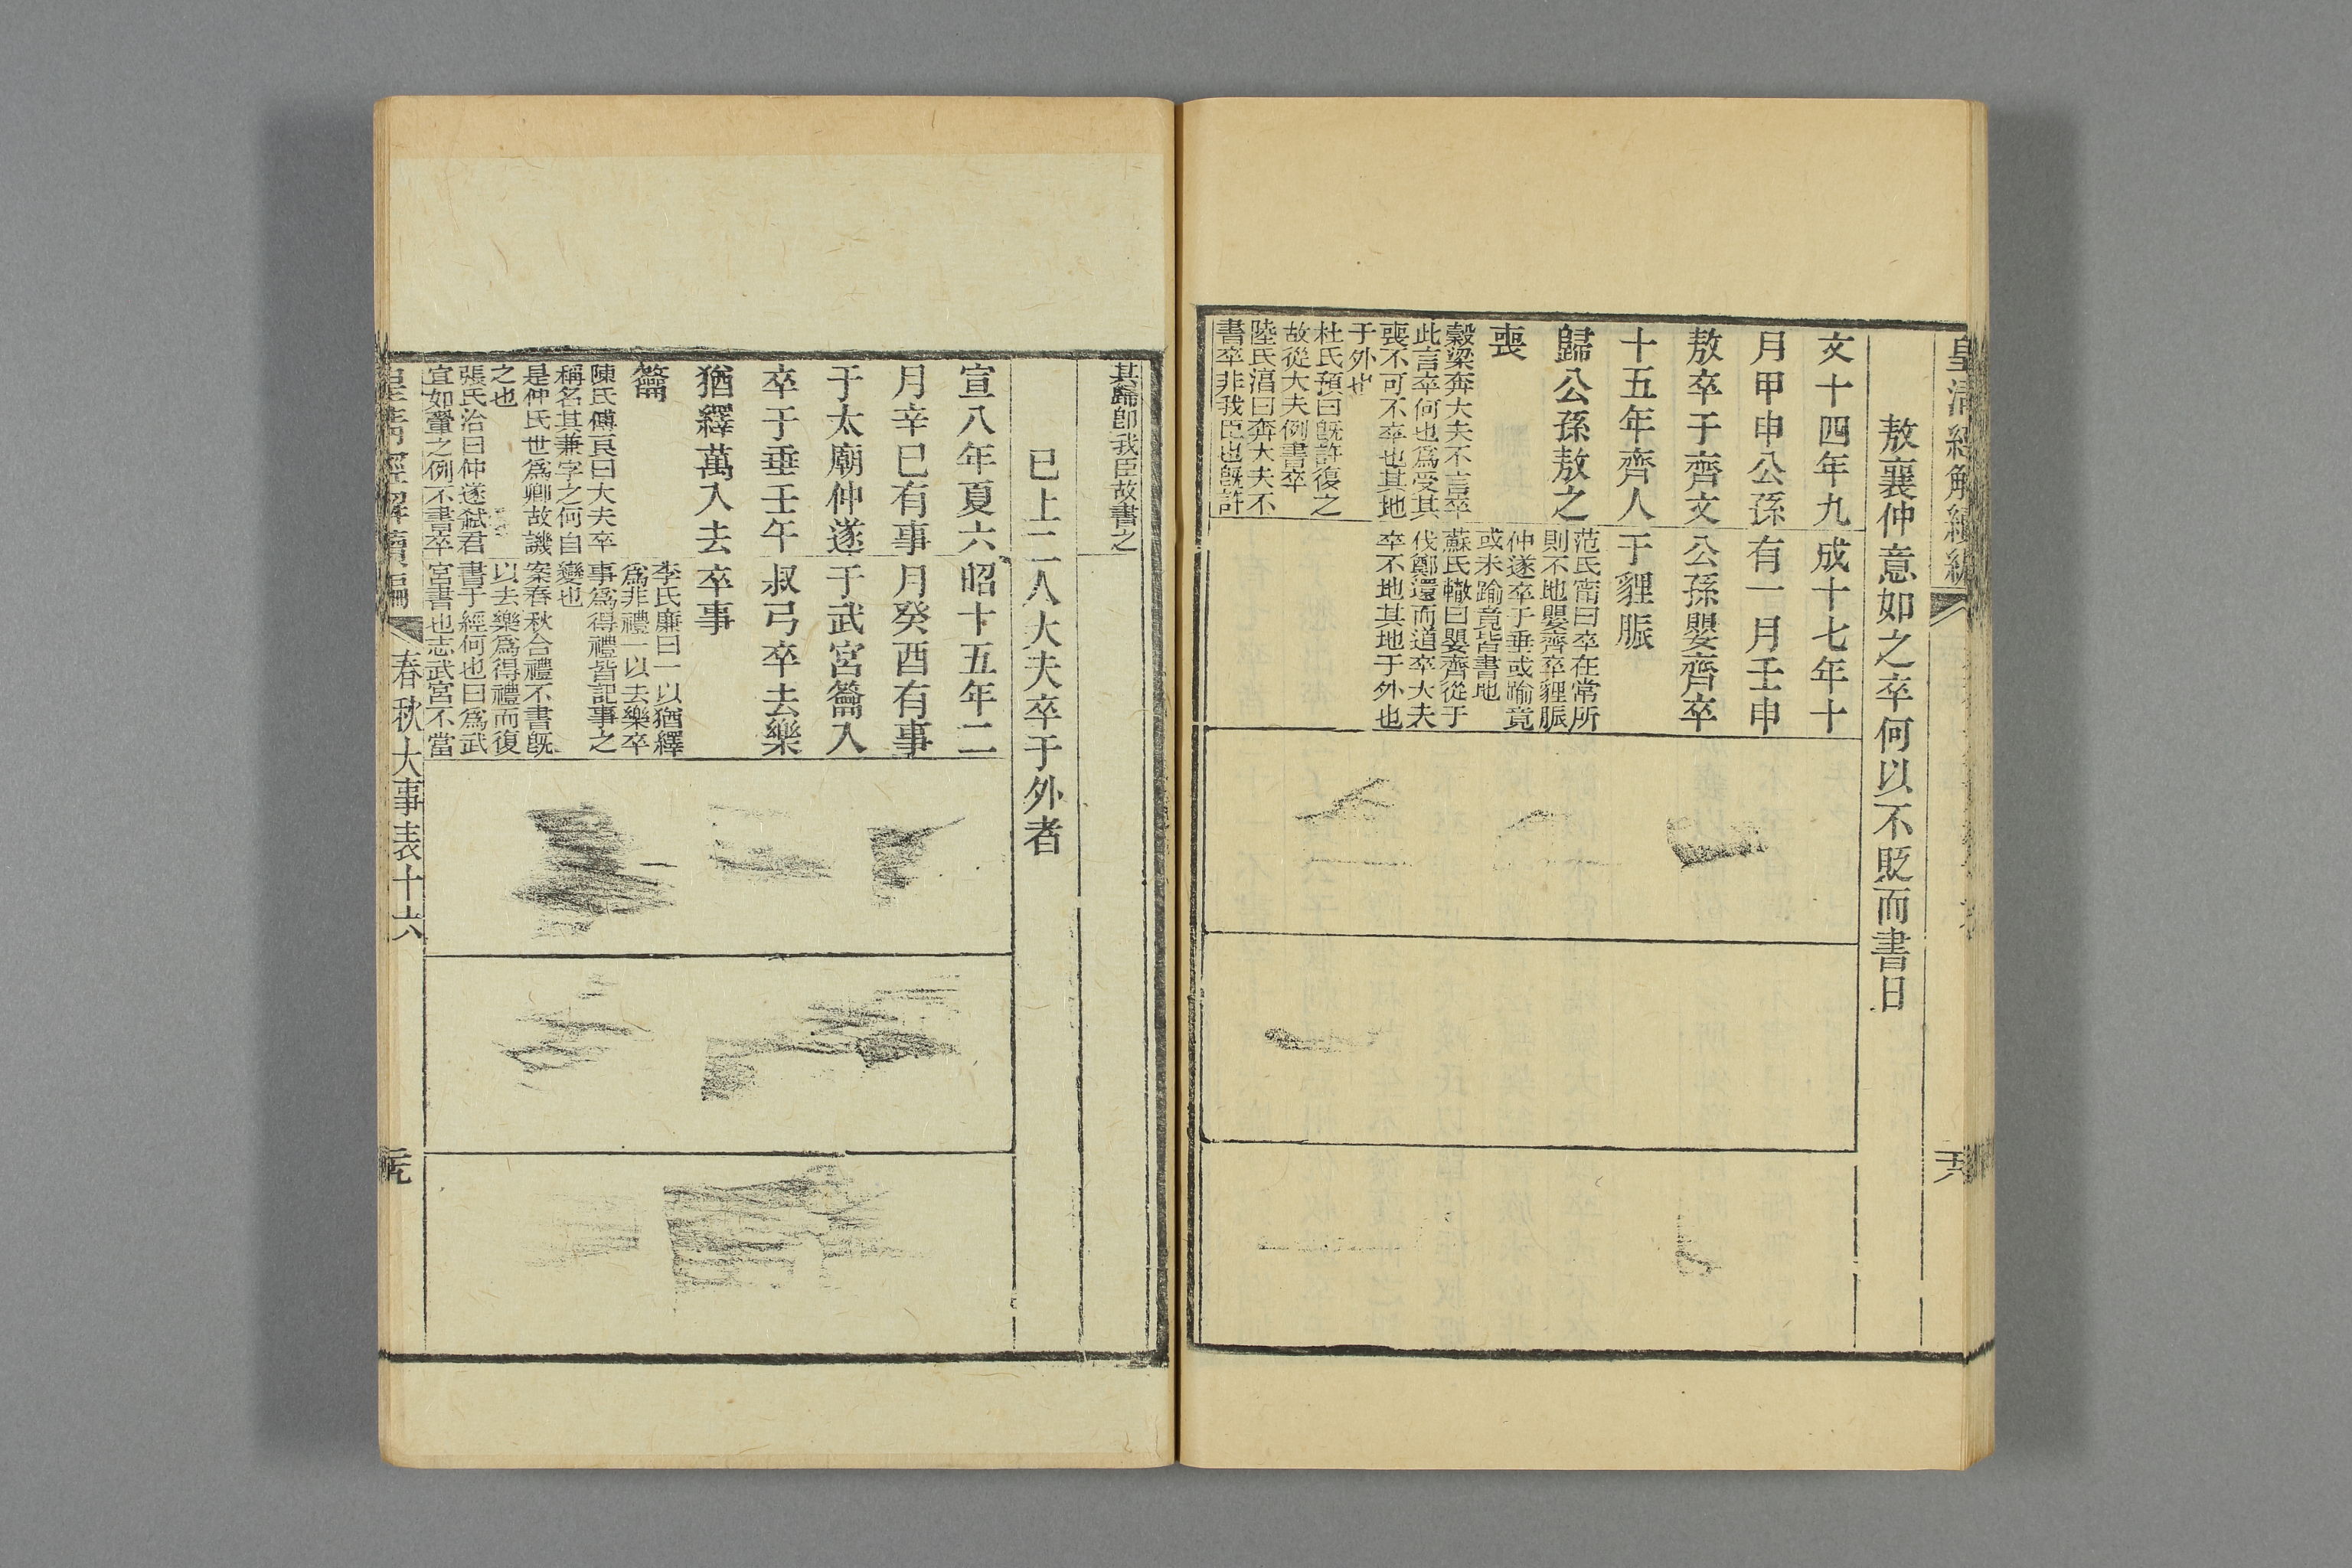 皇清經解續編
敖襄仲意如之卒何以不貶而書日
文十四年九
月甲申公孫
敖卒于齊文
十五年齊人
歸公孫敖之
喪
穀梁奔大夫不言卒
此言卒何也爲受其
喪不可不卒也其地
于外也
杜氏預曰旣許復之
故從大夫例書卒
陸氏淳曰奔大夫不
書卒非我臣也旣許
成十七年十
有一月壬申
公孫嬰齊卒
于貍脤
范氏甯曰卒在常所
則不地嬰齊卒貍脤
仲遂卒于垂或踰竟
或未踰竟皆書地
蘇氏轍曰嬰齊從于
伐鄭還而道卒大夫
卒不地其地于外也
其歸卽我臣故書之
已上二人大夫卒于外者
宣八年夏六
月辛巳有事
于太廟仲遂
卒于垂壬午
猶繹萬入去
籥
陳氏傅良曰大夫卒
稱名其兼字之何自
是仲氏世爲卿故譏
之也
張氏洽曰仲遂弑君
宜如翬之例不書卒
昭十五年二
月癸酉有事
于武宮籥入
叔弓卒去樂
卒事
李氏廉曰一以猶繹
爲非禮一以去樂卒
事爲得禮皆記事之
變也
案春秋合禮不書旣
以去樂爲得禮而復
書于經何也曰爲武
宮書也志武宮不當
皇清經解續編
春秋大事表十六